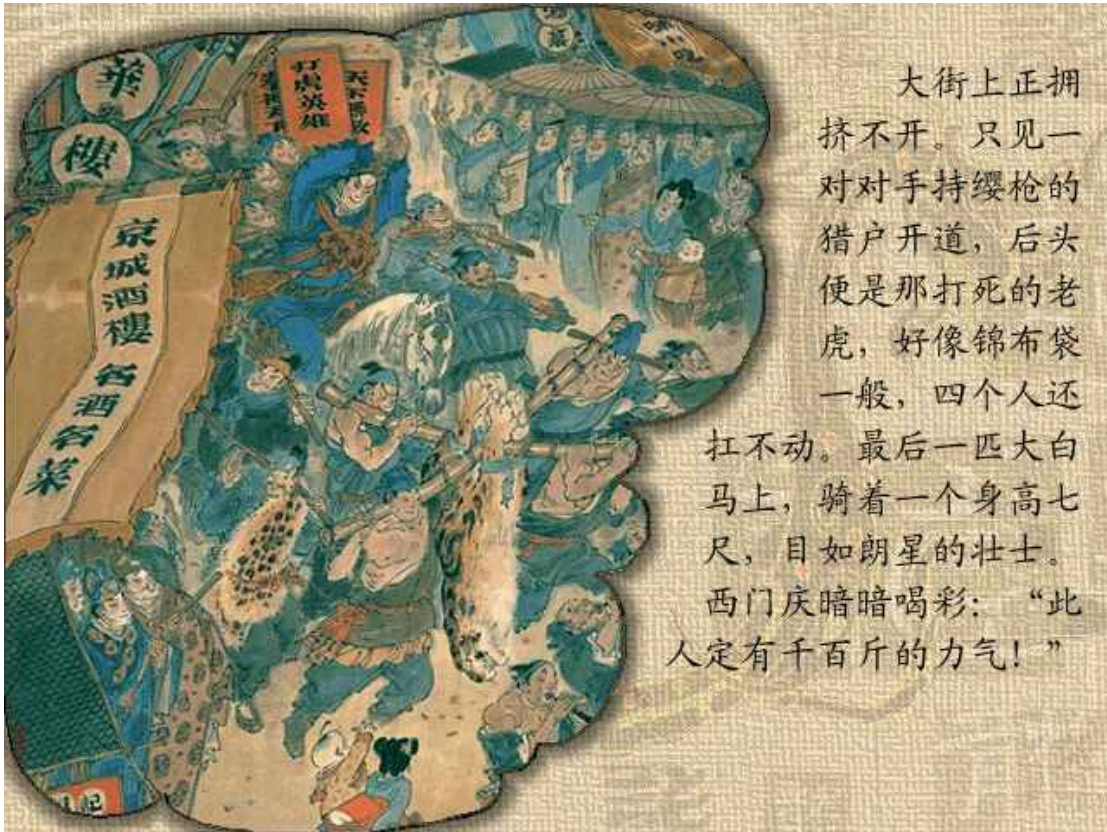 華
樓
打虎英雄
京城酒樓 名酒名菜
大街上正拥
挤不开。只见一
对对手持缨枪的
猎户开道，后头
便是那打死的老
虎，好像锦布袋
一般，四个人还
扛不动。最后一匹大白
马上，骑着一个身高七
尺，目如朗星的壮士。
西门庆暗暗喝彩：“此
人定有千百斤的力气！”